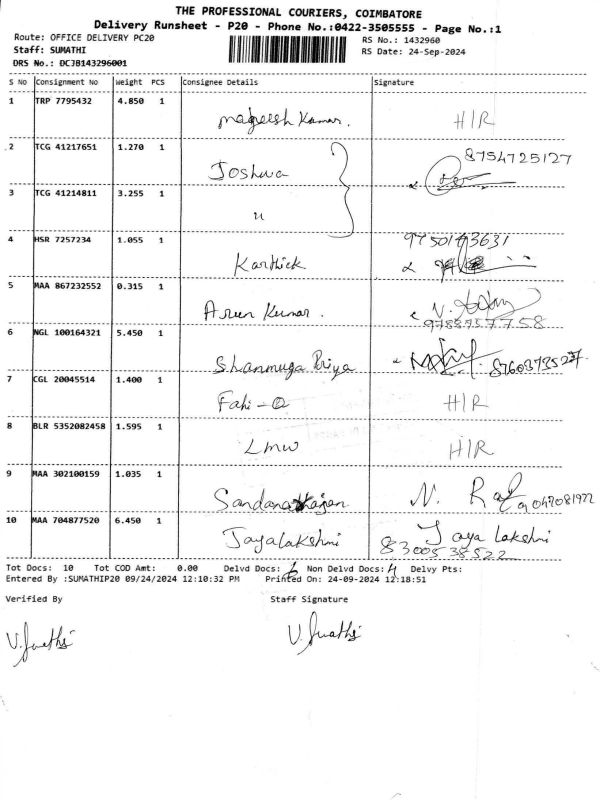 THE PROFESSIONAL COURIERS, COIMBATORE
Delivery Runsheet - P20 - Phone No.:0422-3505555 - Page No.:1
Route: OFFICE DELIVERY PC20 RS No.: 1432960
Staff: SUMATHI RS Date: 24-Sep-2024
DRS No.: DCJB143296001
S No Consignment No Weight PCS Consignee Details Signature
1 TRP 7795432 4.850 1 Mageesh Kumar. H/R
2 TCG 41217651 1.270 1 Joshwa 8754725127
3 TCG 41214811 3.255 1 "
4 HSR 7257234 1.055 1 Karthick
5 MAA 867232552 0.315 1 Arun Kumar.
6 NGL 100164321 5.450 1 Shanmuga Priya
7 CGL 20045514 1.400 1 Fahi - H/R
8 BLR 5352082458 1.595 1 LMW H/R
9 MAA 302100159 1.035 1 N.
10 MAA 704877520 6.450 1 Jayalakshmi Jaya lakshmi
8300538522
Tot Docs: 10 Tot COD Amt: 0.00 Delvd Docs: 6 Non Delvd Docs: 4 Delvy Pts:
Entered By :SUMATHIP20 09/24/2024 12:10:32 PM Printed On: 24-09-2024 12:18:51
Verified By Staff Signature